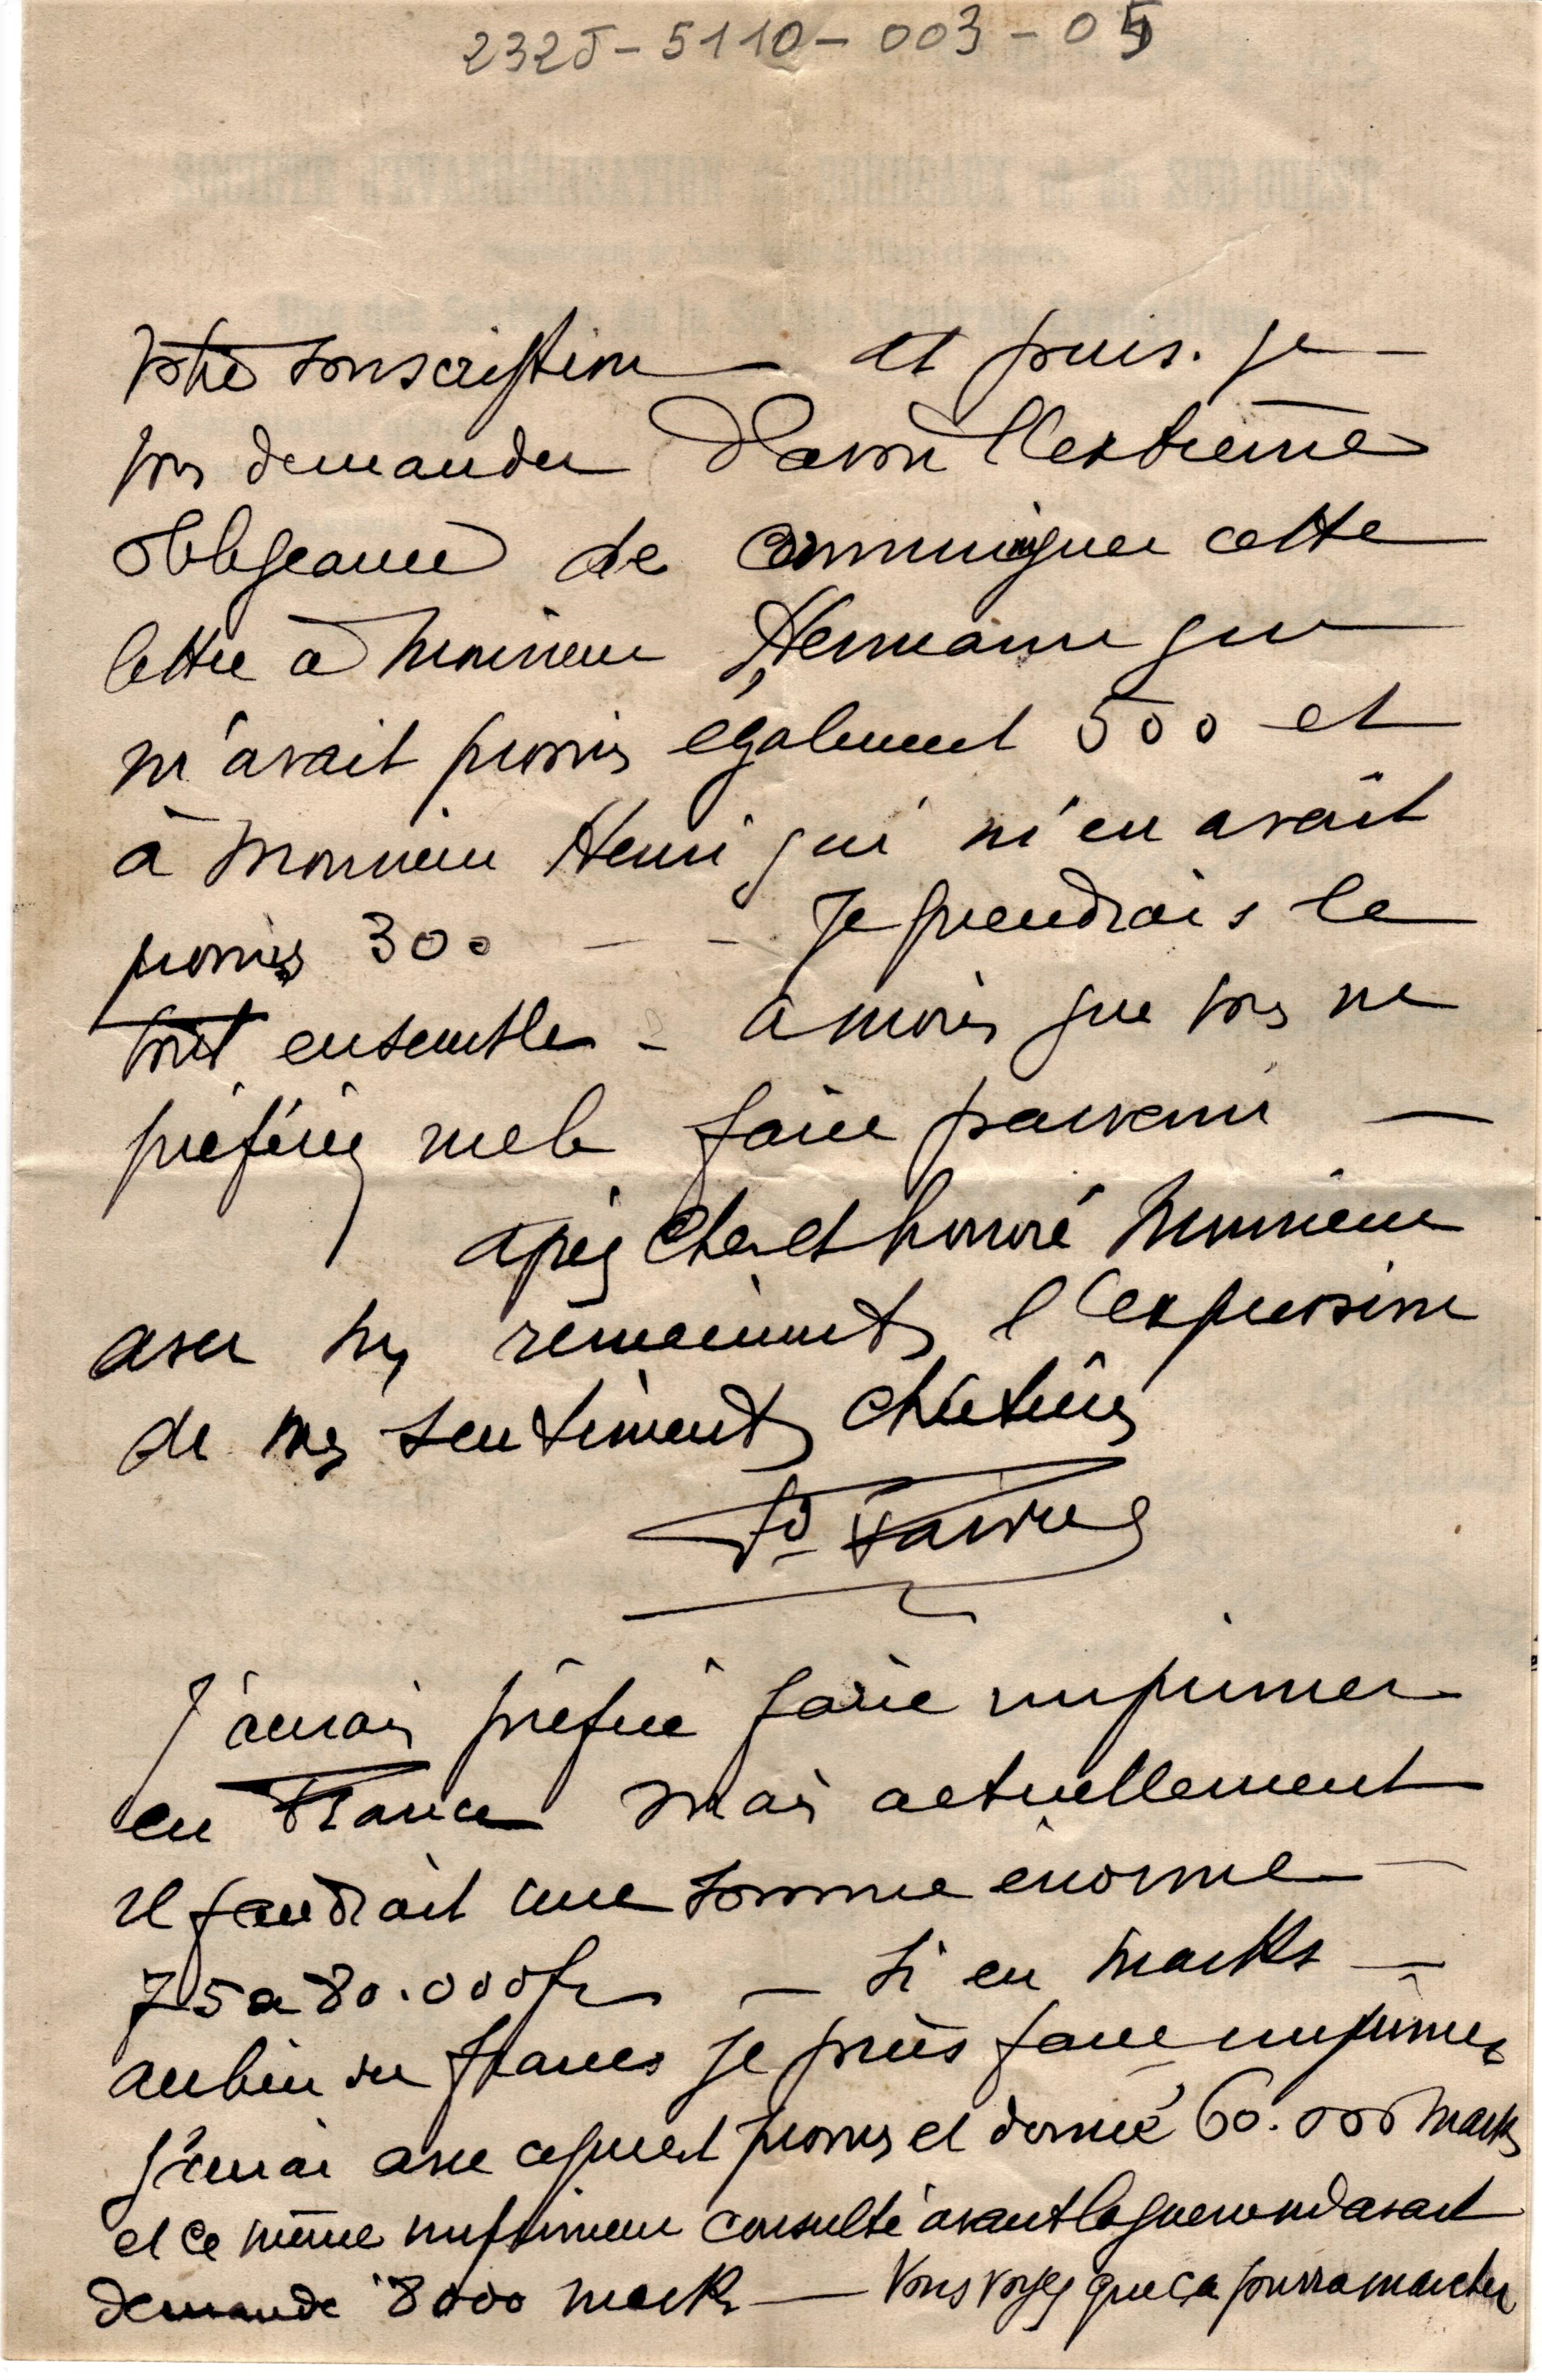 232J-5110-003-05
votre souscription — et puis-je
vous demander d'avoir l'extrême
obligeance de communiquer cette
lettre à Monsieur Hermann qui
m'avait promis également 500 et
à Monsieur Henri qui m'en avait
promis 300 — - Je prendrais le
tout ensemble - à moins que vous ne
préfériez me le faire parvenir —
agréez cher et honoré Monsieur
avec mes remerciements l'expression
de mes sentiments chrétiens
J'aurais préféré faire imprimer
en France mais actuellement
il faudrait une somme énorme —
75 a 80.000 fr — Si en marks —
au lieu de francs je puis faire imprimer
J'aurai avec ce qui est promis et donné 60.000 marks
et ce même imprimeur consulté avant la guerre m'avait
demandé 8000 marks — Vous voyez que ça pourra marcher